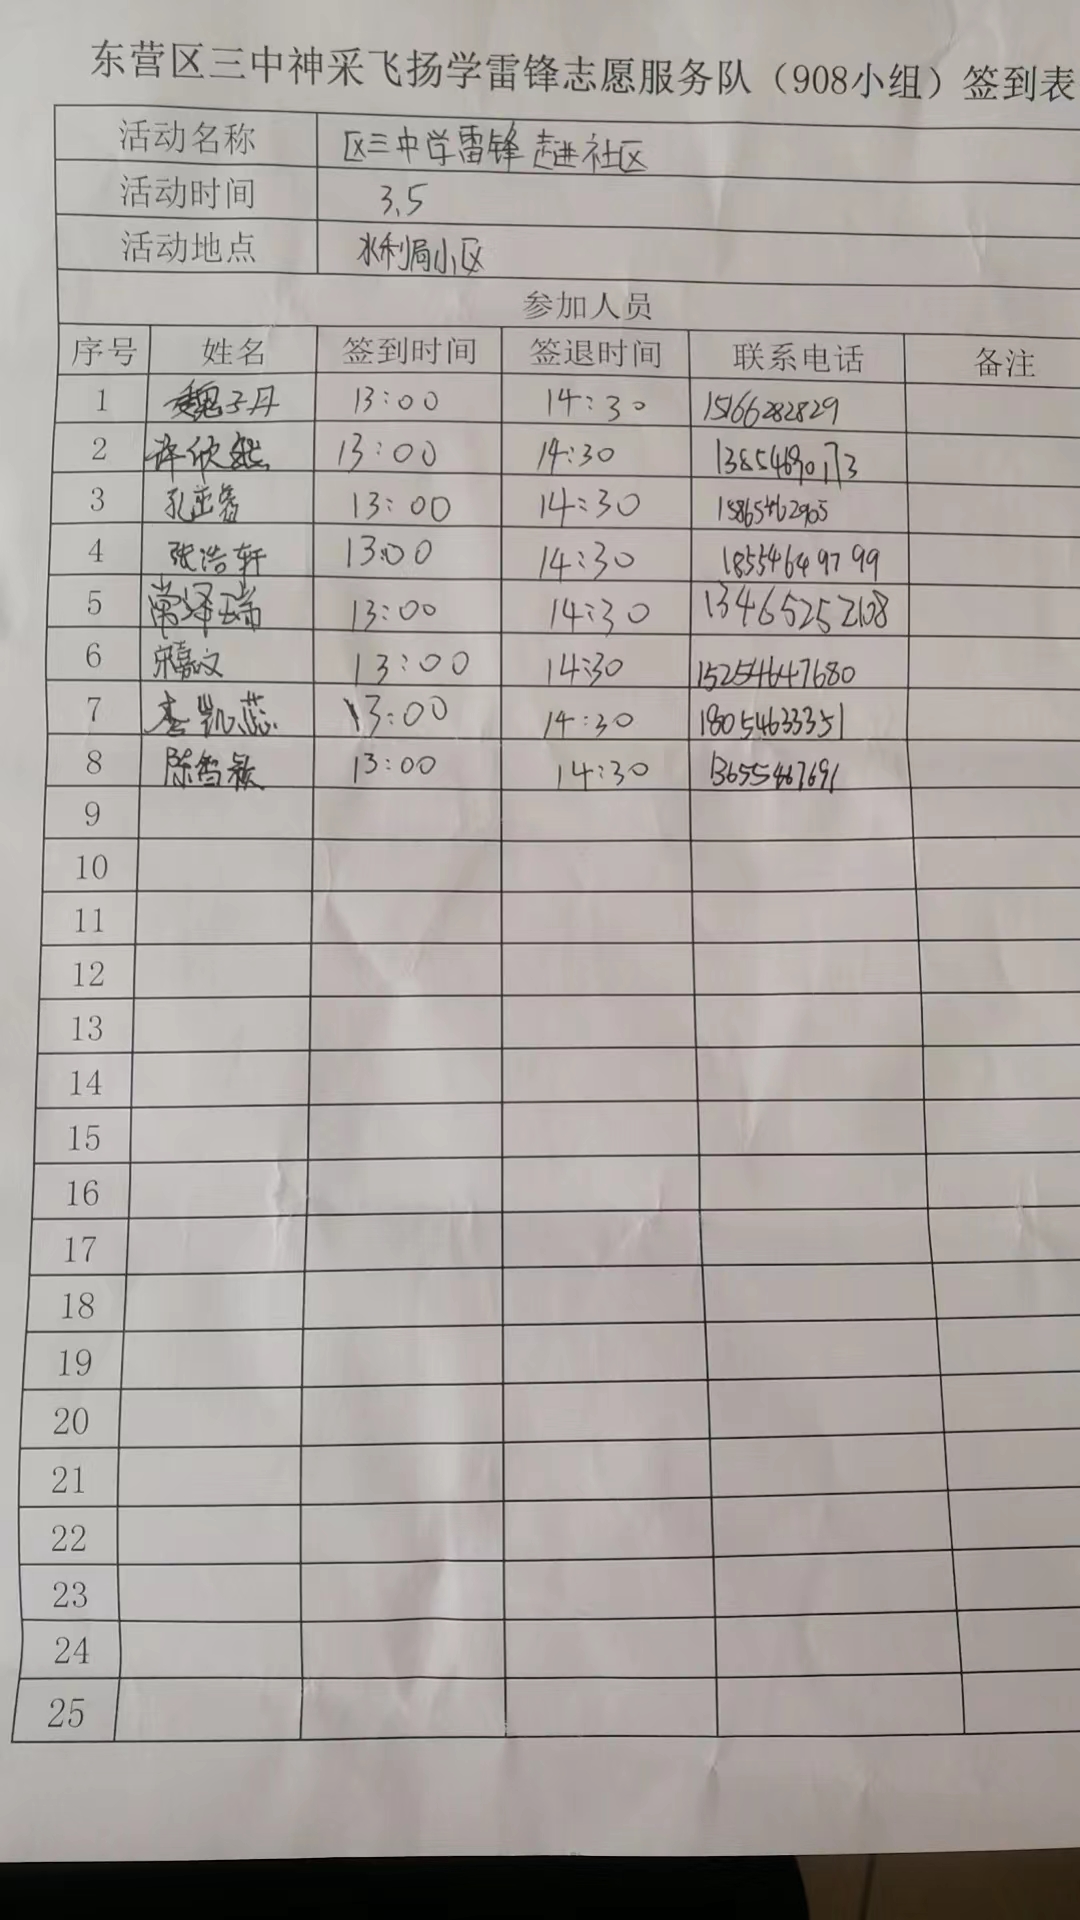 东营区三中神采飞扬学雷锋志愿服务队（908小组）签到表
活动名称 区三中学雷锋走进社区
活动时间 3.5
活动地点 水利局小区
参加人员
序号 姓名 签到时间 签退时间 联系电话 备注
1 魏子丹 13:00 14:30 15166282829
2 许欣然 13:00 14:30
3 13:00 14:30
4 张浩轩 13:00 14:30 18554649799
5 常泽瑞 13:00 14:30 13465252108
6 宋嘉文 13:00 14:30 15254647680
7 李凯蕊 13:00 14:30 18054633351
8 13:00 14:30
9
10
11
12
13
14
15
16
17
18
19
20
21
22
23
24
25